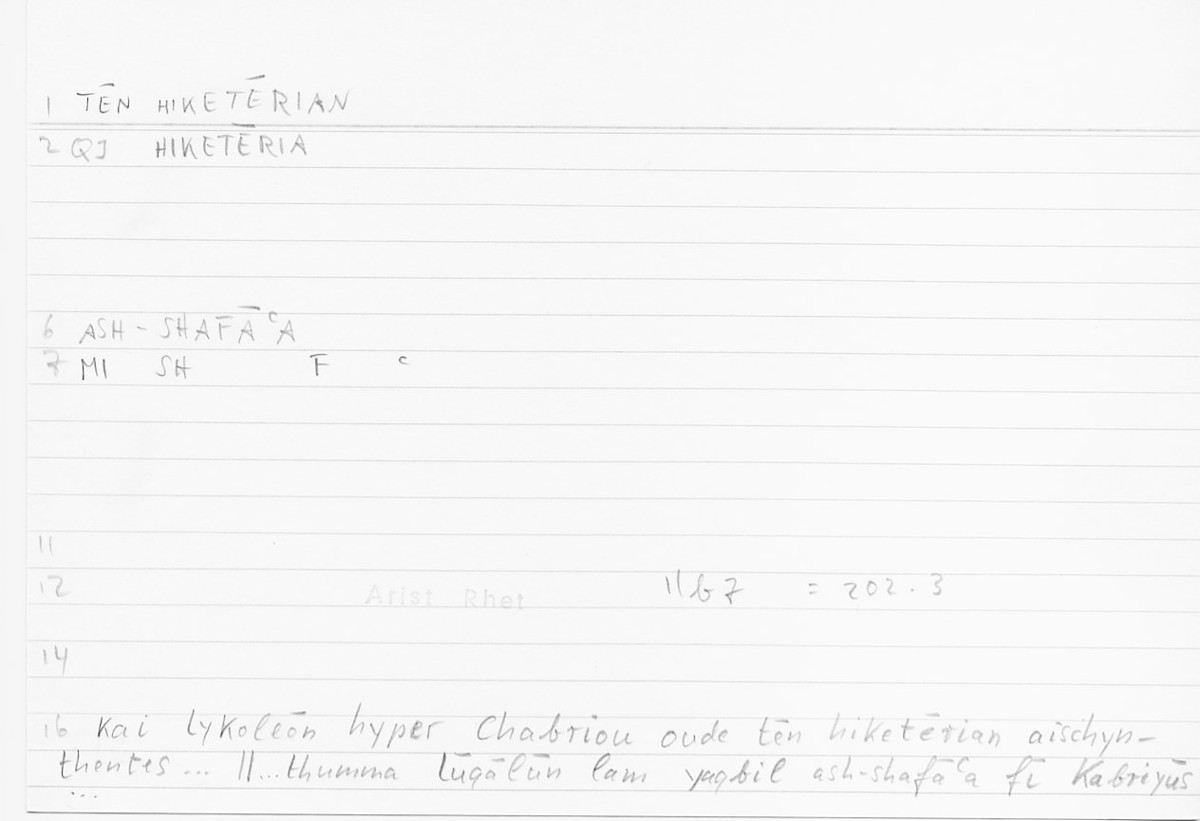 1 TĒN HIKETĒRIAN
2 QJ HIKETĒRIA
6 ASH-SHAFĀʿA
7 MI SH F ʿ
11
12 Arist Rhet 11b7 = 202.3
14
16 Kai Lykoleōn hyper Chabriou oude tēn hiketērian aischyn-
thentes... ||...thumma Lūqālūn lam yaqbil ash-shafāʿa fī Kabriyūs
...